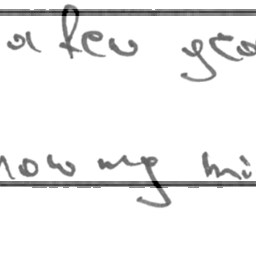 a few yea
now my mi